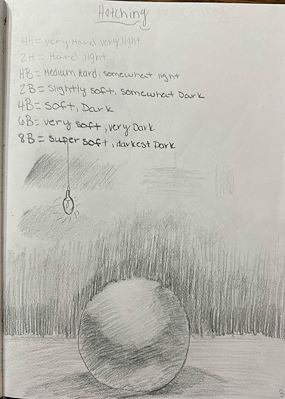 Hatching
4H = very Hard, very light
2H = Hard light
HB = Medium Hard, somewhat light
2B = Slightly soft, somewhat Dark
4B = Soft, Dark
6B = very soft, very Dark
8B = super soft, darkest Dark